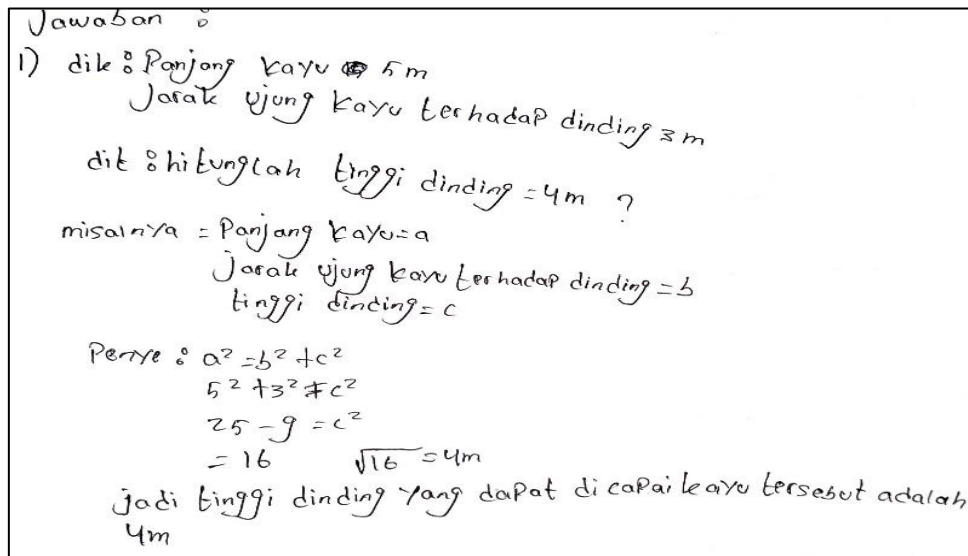 Jawaban :
1) dik : Panjang kayu 5 m
Jarak ujung kayu terhadap dinding 3 m
dit : hitunglah tinggi dinding = 4 m ?
misalnya = Panjang kayu = a
Jarak ujung kayu terhadap dinding = b
tinggi dinding = c
Penye : a² = b² + c²
5² + 3² ≠ c²
25 - 9 = c²
= 16 √16 = 4m
jadi tinggi dinding yang dapat di capai kayu tersebut adalah
4m